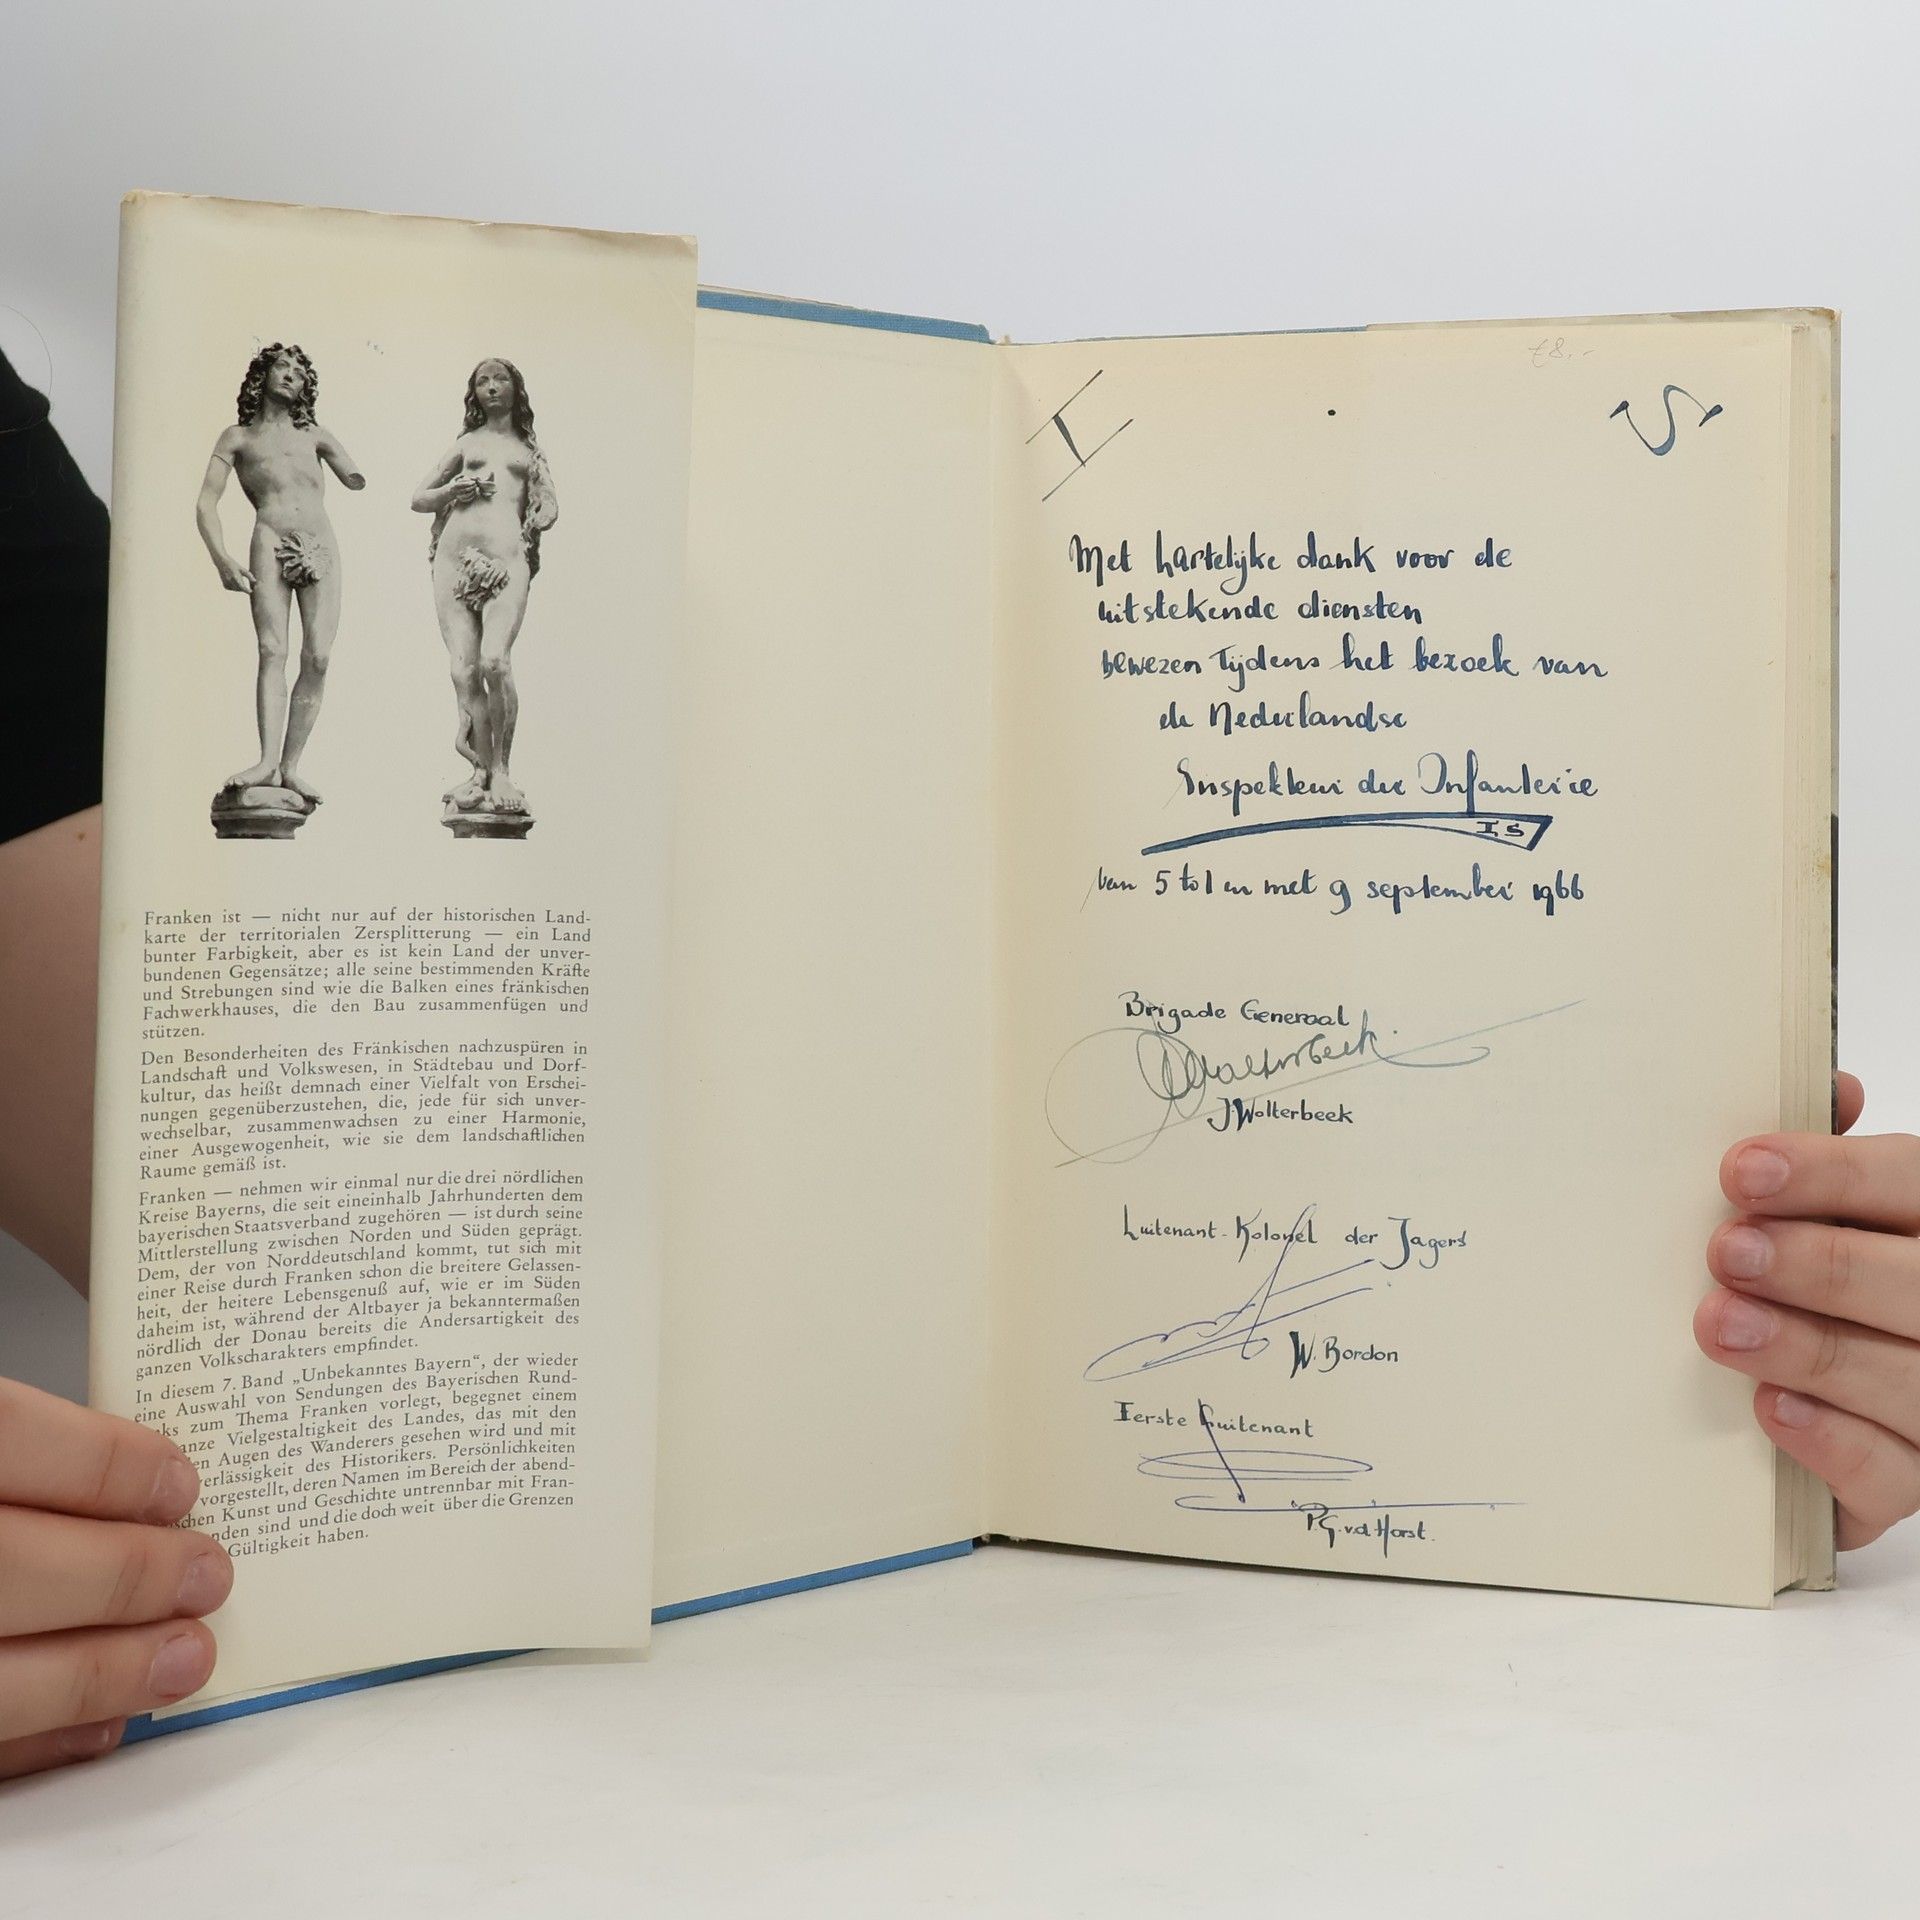 Franken ist — nicht nur auf der historischen Land-
karte der territorialen Zersplitterung — ein Land
bunter Farbigkeit, aber es ist kein Land der unver-
bundenen Gegensätze; alle seine bestimmenden Kräfte
und Strebungen sind wie die Balken eines fränkischen
Fachwerkhauses, die den Bau zusammenfügen und
stützen.
Den Besonderheiten des Fränkischen nachzuspüren in
Landschaft und Volkswesen, in Städtebau und Dorf-
kultur, das heißt demnach einer Vielfalt von Erschei-
nungen gegenüberzustehen, die, jede für sich unver-
wechselbar, zusammenwachsen zu einer Harmonie,
einer Ausgewogenheit, wie sie dem landschaftlichen
Raume gemäß ist.
Franken — nehmen wir einmal nur die drei nördlichen
Kreise Bayerns, die seit eineinhalb Jahrhunderten dem
bayerischen Staatsverband zugehören — ist durch seine
Mittlerstellung zwischen Norden und Süden geprägt.
Dem, der von Norddeutschland kommt, tut sich mit
einer Reise durch Franken schon die breitere Gelassen-
heit, der heitere Lebensgenuß auf, wie er im Süden
daheim ist, während der Altbayer ja bekanntermaßen
nördlich der Donau bereits die Andersartigkeit des
ganzen Volkscharakters empfindet.
In diesem 7. Band „Unbekanntes Bayern“, der wieder
eine Auswahl von Sendungen des Bayerischen Rund-
ks zum Thema Franken vorlegt, begegnet einem
anze Vielgestaltigkeit des Landes, das mit den
en Augen des Wanderers gesehen wird und mit
verlässigkeit des Historikers. Persönlichkeiten
vorgestellt, deren Namen im Bereich der abend-
schen Kunst und Geschichte untrennbar mit Fran-
nden sind und die doch weit über die Grenzen
Gültigkeit haben.
8.-
I S
Met hartelijke dank voor de
uitstekende diensten
bewezen tijdens het bezoek van
de Nederlandse
Inspekteur der Infanterie
IS
van 5 tot en met 9 september 1966
Brigade Generaal
J Wolterbeek
Luitenant-Kolonel der Jagers
W. Bordon
Ierste Luitenant
P.G. v.d. Horst.